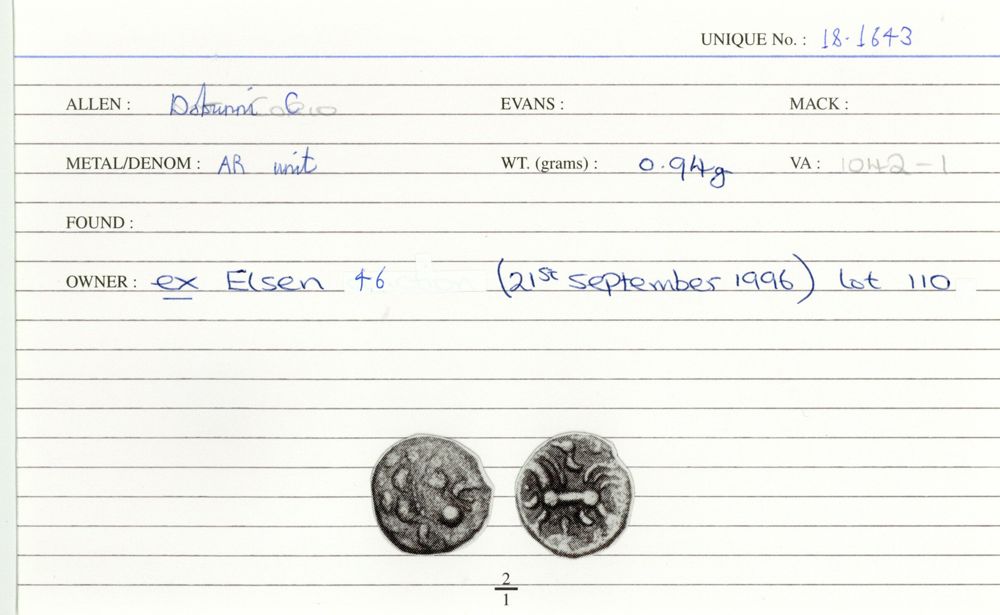 UNIQUE No. : 18·1643
ALLEN : Dobunni C EVANS : MACK :
METAL/DENOM : AR unit WT. (grams) : 0.94g VA : 1042-1
FOUND :
OWNER : ex Elsen 46 (21st September 1996) lot 110
2
1